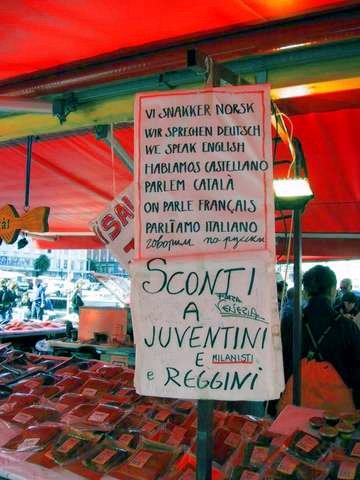 VI SNAKKER NORSK
WIR SPRECHEN DEUTSCH
WE SPEAK ENGLISH
HABLAMOS CASTELLANO
PARLEM CATALÀ
ON PARLE FRANÇAIS
PARLIAMO ITALIANO
говорим по русски
SAL
SCONTI
A
FORZA
VENEZIA
JUVENTINI
E MILANISTI
E REGGINI